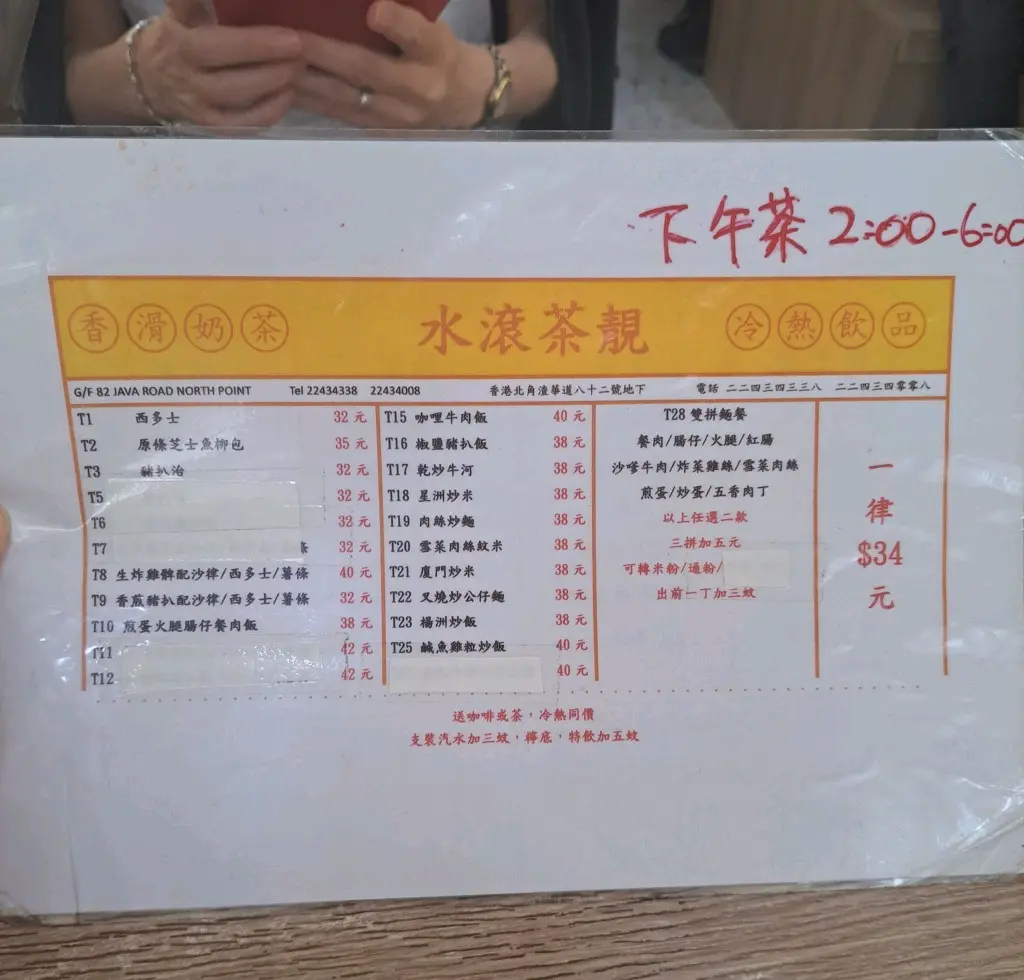 下午茶 2:00-6:00
香滑奶茶 水滾茶靚 冷熱飲品
G/F 82 JAVA ROAD NORTH POINT Tel 22434338 22434008 香港北角渣華道八十二號地下 電話 二二四三四三三八 二二四三四零零八
T1 西多士 32 元
T2 原條芝士魚柳包 35 元
T3 豬扒治 32 元
T5 32 元
T6 32 元
T7 條 32 元
T8 生炸雞髀配沙律/西多士/薯條 40 元
T9 香煎豬扒配沙律/西多士/薯條 32 元
T10 煎蛋火腿腸仔餐肉飯 38 元
T11 42 元
T12 42 元
T15 咖哩牛肉飯 40 元
T16 椒鹽豬扒飯 38 元
T17 乾炒牛河 38 元
T18 星洲炒米 38 元
T19 肉絲炒麵 38 元
T20 雪菜肉絲炆米 38 元
T21 廈門炒米 38 元
T22 叉燒炒公仔麵 38 元
T23 楊洲炒飯 38 元
T25 鹹魚雞粒炒飯 40 元
40 元
T28 雙拼麵餐
餐肉/腸仔/火腿/紅腸
沙嗲牛肉/炸菜雞絲/雪菜肉絲
煎蛋/炒蛋/五香肉丁
以上任選二款
三拼加五元
可轉米粉/通粉/
出前一丁加三蚊
一
律
$34
元
送咖啡或茶，冷熱同價
支裝汽水加三蚊，檸底，特飲加五蚊